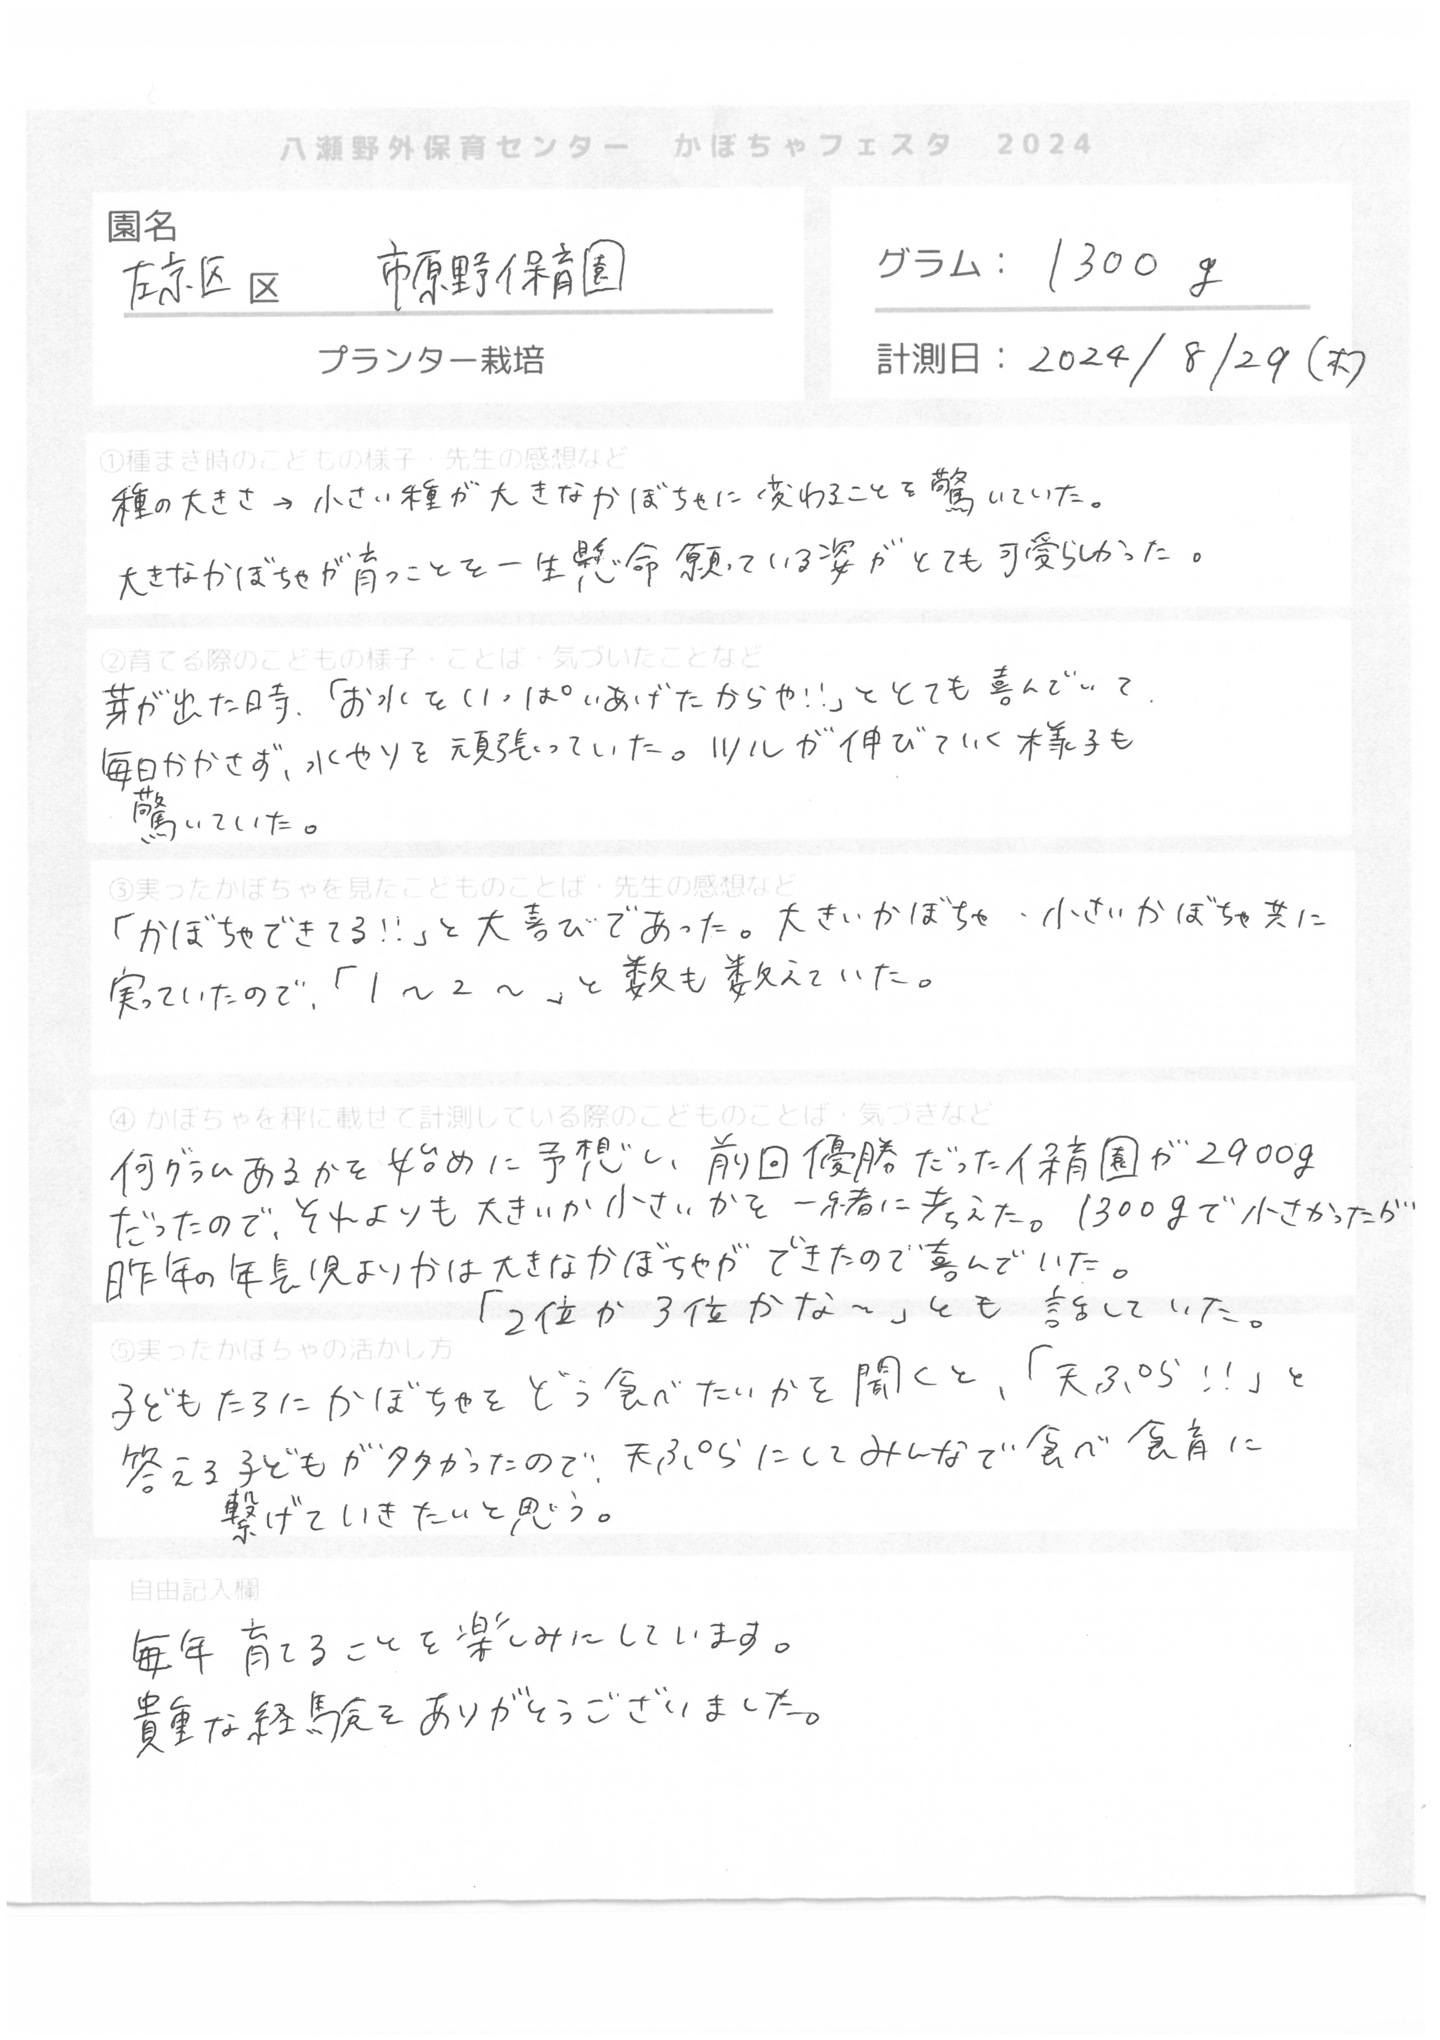 八瀬野外保育センター　かぼちゃフェスタ　2024
園名
左京区 区　市原野保育園
プランター栽培
グラム： 1300 g
計測日： 2024/8/29(木)
①種まき時のこどもの様子・先生の感想など
種の大きさ→小さい種が大きなかぼちゃに変わることを驚いていた。
大きなかぼちゃが育つことを一生懸命願っている姿がとても可愛らしかった。
②育てる際のこどもの様子・ことば・気づいたことなど
芽が出た時、「お水をいっぱいあげたからや!!」ととても喜んでいて、
毎日かかさず、水やりを頑張っていた。ツルが伸びていく様子も
驚いていた。
③実ったかぼちゃを見たこどものことば・先生の感想など
「かぼちゃできてる!!」と大喜びであった。大きいかぼちゃ・小さいかぼちゃ共に
実っていたので、「1～2～」と数も数えていた。
④ かぼちゃを秤に載せて計測している際のこどものことば・気づきなど
何グラムあるかを始めに予想し、前回優勝だった保育園が2900g
だったので、それよりも大きいか小さいかを一緒に考えた。1300gで小さかったが
昨年の年長児よりかは大きなかぼちゃができたので喜んでいた。
「2位か3位かな～」とも話していた。
⑤実ったかぼちゃの活かし方
子どもたちにかぼちゃをどう食べたいかを聞くと、「天ぷら!!」と
答える子どもが多かったので、天ぷらにしてみんなで食べ食育に
繋げていきたいと思う。
自由記入欄
毎年育てることを楽しみにしています。
貴重な経験をありがとうございました。